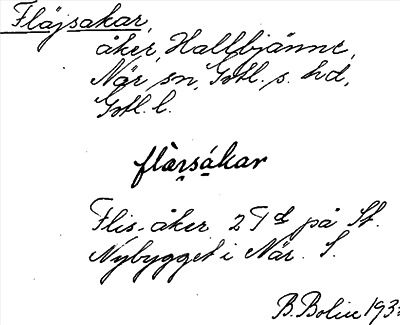 Fläjsakar,
åker, Hallbjänne,
När sn, Gotl. s. hd,
Gotl. l.
flàrsákar
Flis-åker 2 på St.
Nybygget i När. S.
B. Bolin 193